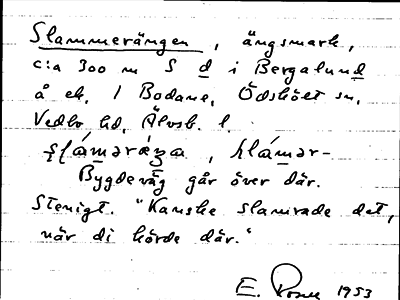 Slammerängen, ängsmark,
c:a 300 m S d i Bergalund
å ek. 1 Bodane, Ödskölt sn,
Vedbo hd, Älvsb. l.
Bygdeväg går över där.
Stenigt. "Kanske slamrade det,
när di körde där."
E. 1953